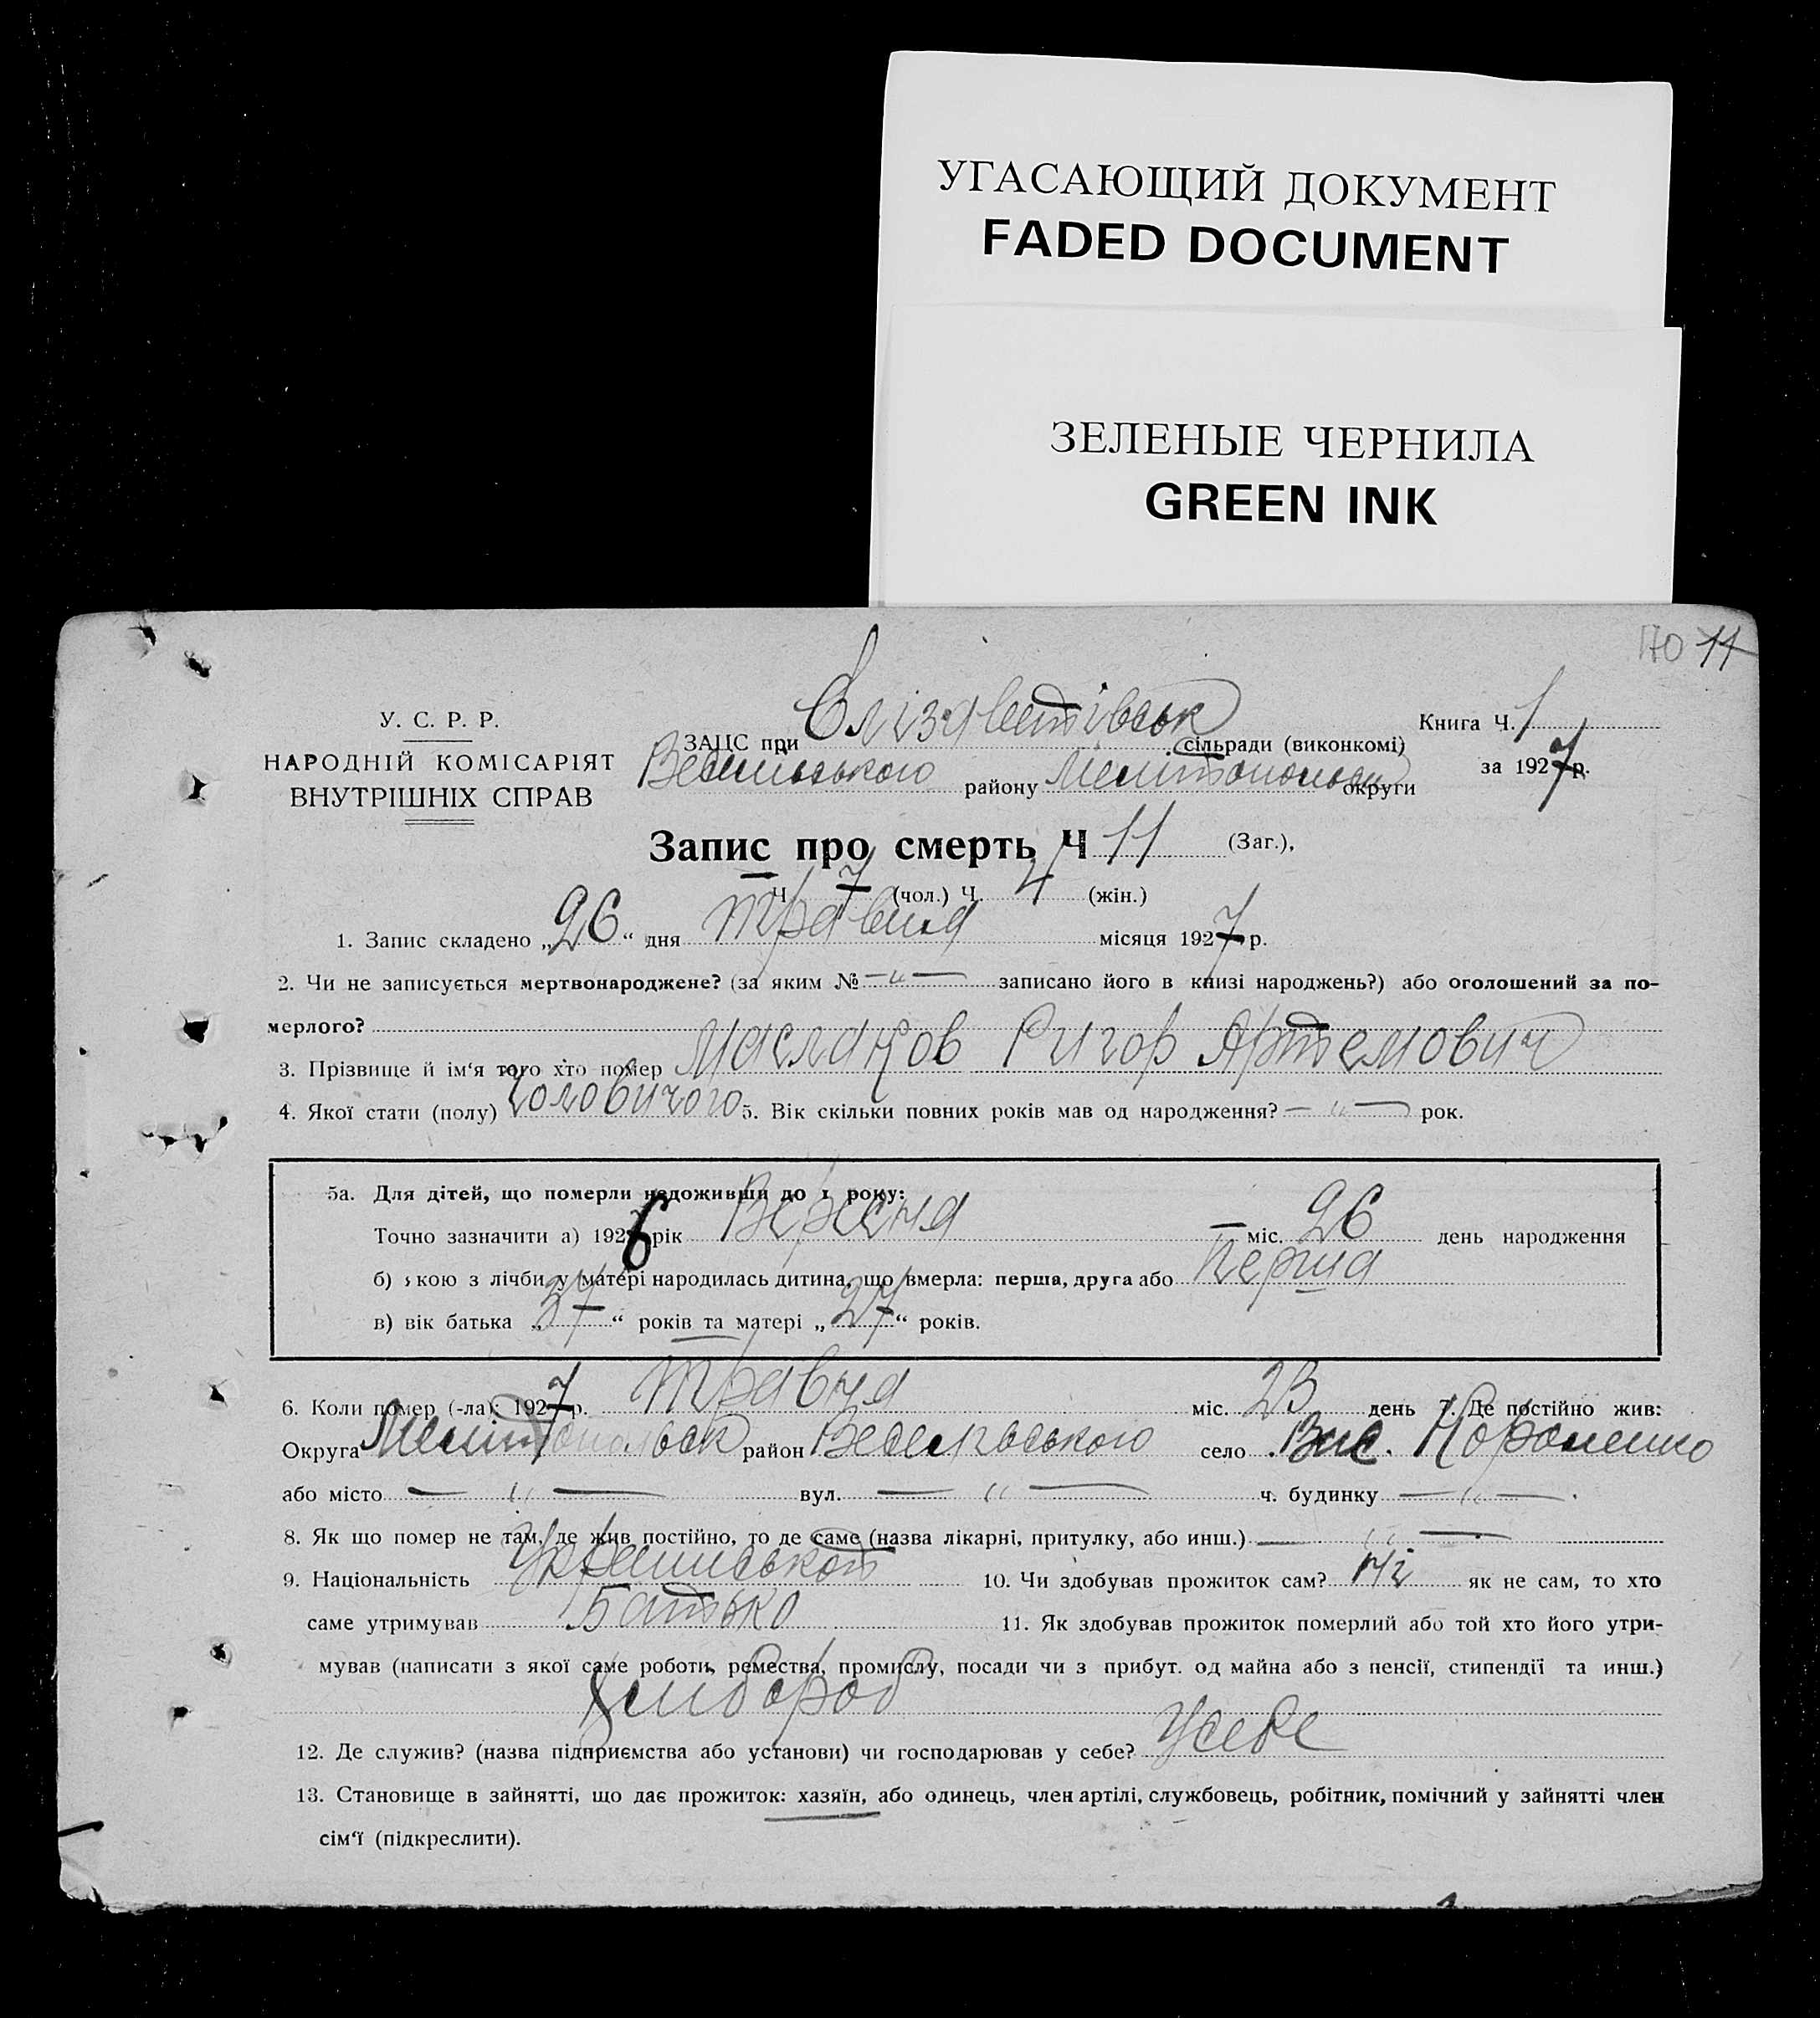 УГАСАЮЩИЙ ДОКУМЕНТ
FADED DOCUMENT
ЗЕЛЕНЫЕ ЧЕРНИЛА
GREEN INK
170 11
У. С. Р. Р.
НАРОДНІЙ КОМІСАРІЯТ
ВНУТРІШНІХ СПРАВ
ЗАЦС при Єлізаветівськ сільради (виконкомі)
Веселівського району Мелітопольськ округи
Книга Ч. 1
за 1927 р.
Запис про смерть Ч 11 (Заг.),
Ч 7 (чол.) Ч. 4 (жін.)
1. Запис складено „26“ дня травня місяця 1927 р.
2. Чи не записується мертвонароджене? (за яким № — „ — записано його в книзі народжень?) або оголошений за по-
мерлого?
3. Прізвище й ім‘я того хто помер Ригор Артемович
4. Якої стати (полу) чоловичого 5. Вік скільки повних років мав од народження? — „ — рок.
5а. Для дітей, що померли недоживши до 1 року:
Точно зазначити а) 1926 рік Вересня міс. 26 день народження
б) якою з лічби у матері народилась дитина, що вмерла: перша, друга або перша
в) вік батька „37“ років та матері „27“ років.
6. Коли помер (-ла): 1927 р. травня міс. 23 день 7. Де постійно жив:
Округа Мелітопольськ район Веселівського село Вис.
або місто — „ — вул. — „ — ч. будинку — „ — .
8. Як що помер не там, де жив постійно, то де саме (назва лікарні, притулку, або инш.) — „ —
9. Національність 10. Чи здобував прожиток сам? ні як не сам, то хто
саме утримував Батько 11. Як здобував прожиток померлий або той хто його утри-
мував (написати з якої саме роботи, ремества, промислу, посади чи з прибут. од майна або з пенсії, стипендії та инш.)
Хлибороб
12. Де служив? (назва підприємства або установи) чи господарював у себе? Усебе
13. Становище в зайнятті, що дає прожиток: хазяїн, або одинець, член артілі, службовець, робітник, помічний у зайнятті член
сім‘ї (підкреслити).